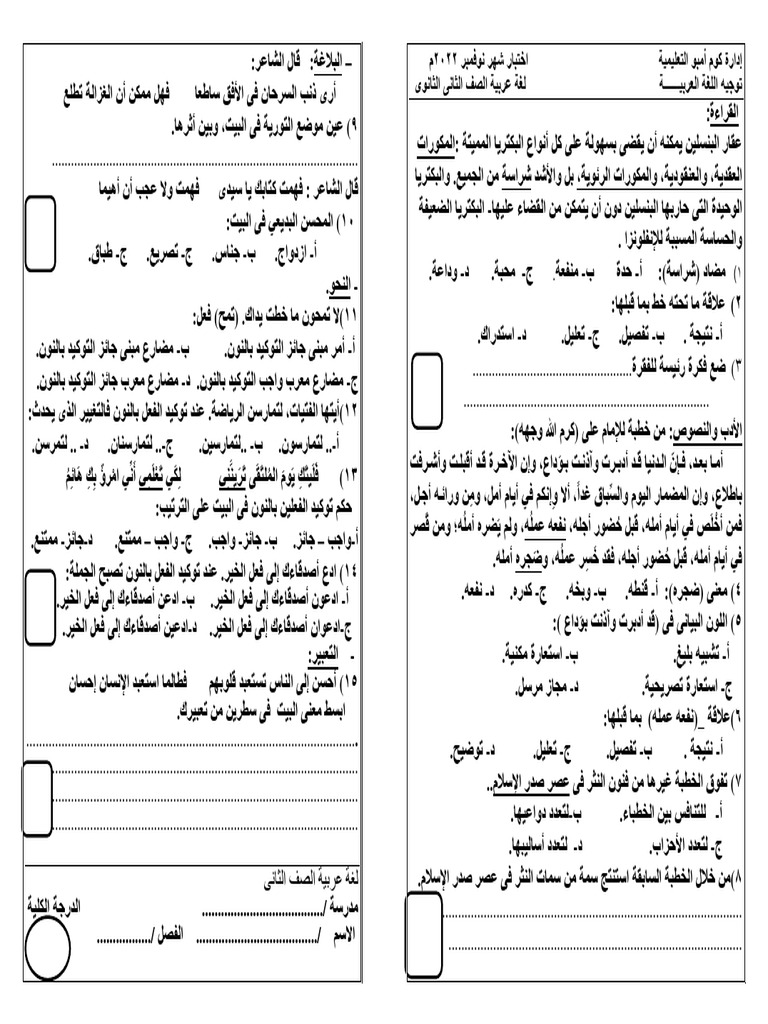 إدارة كوم أمبو التعليمية
اختبار شهر نوفمبر ٢٠٢٢م
توجيه اللغة العربيـــــة
لغة عربية الصف الثانى الثانوى
القراءة:
عقار البنسلين يمكنه أن يقضى بسهولة على كل أنواع البكتريا المميتة :المكورات
العقدية، والعنقودية، والمكورات الرئوية. بل والأشد شراسة من الجميع. والبكتريا
الوحيدة التى حاربها البنسلين دون أن يتمكن من القضاء عليها- البكتريا الضعيفة
والحساسة المسببة للإنفلونزا .
١) مضاد (شراسة): أ- حدة ب- منفعة. ج- محبة. د- وداعة.
٢) علاقة ما تحته خط بما قبلها:
أ- نتيجة . ب- تفصيل. ج- تعليل. د- استدراك.
٣) ضع فكرة رئيسة للفقرة......................................
............................................................
الأدب والنصوص: من خطبة للإمام على (كرم الله وجهه):
أما بعد، فإنَّ الدنيا قد أدبرت وآذنت بوَداع، وإن الآخرة قد أقبلت وأشرفت
باطلاع، وإن المضمار اليوم والسِّباق غداً، ألا وإنكم في أيام أمل، ومن ورائه أجل،
فمن أخْلَص في أيام أمله، قبل حُضور أجله، نفعه عملُه، ولم يَضره أملُه؛ ومن قَصَّر
في أيام أمله، قبل حُضور أجله، فقد خُسِر عملُه، وضَجره أمله.
٤) معنى (ضجره): أ- قنطه. ب- وبخه. ج- كدره. د- نفعه.
٥) اللون البيانى فى (قد أدبرت وآذنت بوَداع ):
أ- تشبيه بليغ. ب- استعارة مكنية.
ج- استعارة تصريحية. د- مجاز مرسل.
٦)علاقة _(نفعه عمله) بما قبلها:
أ- نتيجة . ب- تفصيل. ج- تعليل. د- توضيح.
٧) تفوق الخطبة غيرها من فنون النثر فى عصر صدر الإسلام..
أ- للتنافس بين الخطباء. ب-لتعدد دواعيها.
ج- لتعدد الأحزاب. د- لتعدد أساليبها.
٨)من خلال الخطبة السابقة استنتج سمة من سمات النثر فى عصر صدر الإسلام.
............................................................
............................................................
– البلاغة: قال الشاعر:
أرى ذنب السرحان في الأفق ساطعا فهل ممكن أن الغزالة تطلع
٩) عين موضع التورية فى البيت، وبين أثرها.
............................................................
قال الشاعر : فهمت كتابك يا سيدى فهمت ولا عجب أن أهيما
١٠) المحسن البديعي فى البيت:
أ- ازدواج. ب- جناس. ج- تصريع. ج- طباق.
- النحو.
١١)لا تمحون ما خطت يداك. (تمح) فعل:
أ- أمر مبنى جائز التوكيد بالنون. ب- مضارع مبنى جائز التوكيد بالنون.
ج- مضارع معرب واجب التوكيد بالنون. د- مضارع معرب جائز التوكيد بالنون.
١٢)أيتها الفتيات، لتمارسن الرياضة. عند توكيد الفعل بالنون فالتغيير الذى يحدث:
أ-.. لتمارسون. ب- ..لتمارسين. ج-.. لتمارسنان. د- .. لتمرسن.
١٣) فَلَيْتَكِ يَومَ المُلتَقَى تَرَيِنَّنِي لِكَي تَعْلَمِي أَنِّي امْرؤٌ بِكِ هَائِمُ
حكم توكيد الفعلين بالنون فى البيت على الترتيب:
أ-واجب – جائز. ب- جائز- واجب. ج- واجب – ممتنع. د-جائز- ممتنع.
١٤) ادع أصدقاءك إلى فعل الخير. عند توكيد الفعل بالنون تصبح الجملة:
أ- ادعون أصدقاءك إلى فعل الخير. ب- ادعن أصدقاءك إلى فعل الخير.
ج-ادعوان أصدقاءك إلى فعل الخير. د-ادعين أصدقاءك إلى فعل الخير.
- التعبير:
١٥) أحسن إلى الناس تستعبد قلوبهم فطالما استعبد الإنسان إحسان
ابسط معنى البيت فى سطرين من تعبيرك.
............................................................
............................................................
............................................................
............................................................
لغة عربية الصف الثانى
مدرسة /.................................... الدرجة الكلية
الاسم /.................................... الفصل /................